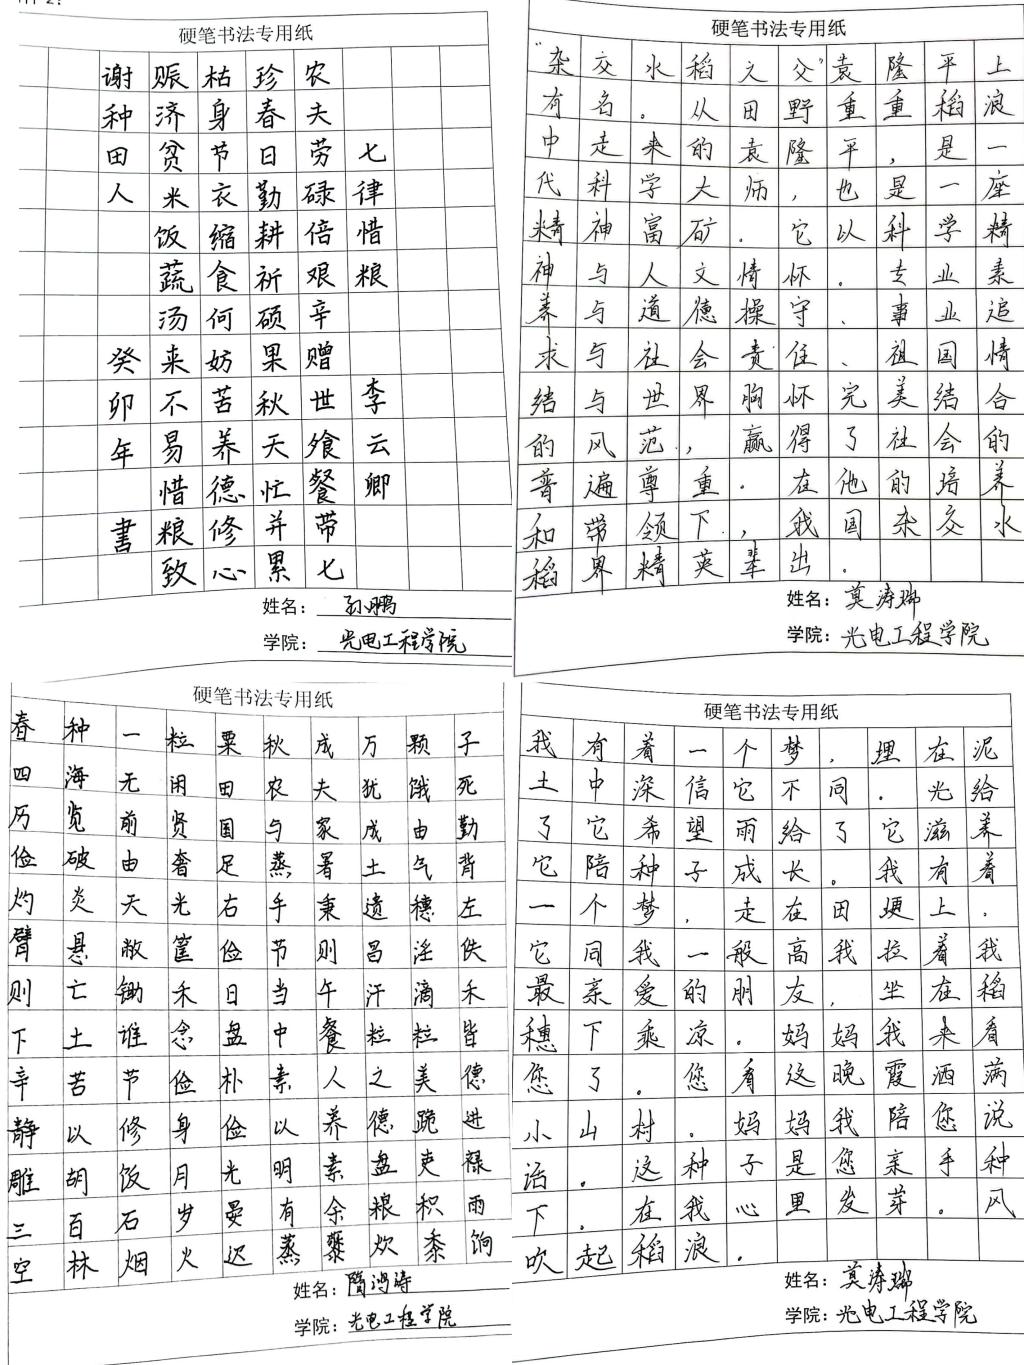 硬笔书法专用纸
七律惜粮 李云卿
农夫劳碌倍艰辛赠世飧餐带七
珍春日勤耕祈硕果秋天忙并累
枯身节衣缩食何妨苦养德修心
赈济贫米饭蔬汤来不易惜粮致
谢种田人 癸卯年書
姓名：孙鹏
学院：光电工程学院
硬笔书法专用纸
“杂交水稻之父”袁隆平上
有名。从田野重重稻浪
中走来的袁隆平，是一
代科学大师，也是一座
精神富矿。它以科学精
神与人文情怀。专业素
养与道德操守、事业追
求与社会责任、祖国情
结与世界胸怀完美结合
的风范，赢得了社会的
普遍尊重。在他的培养
和带领下，我国杂交水
稻界精英辈出。
姓名：莫涛瑞
学院：光电工程学院
硬笔书法专用纸
春种一粒粟秋成万颗子
四海无闲田农夫犹饿死
历览前贤国与家成由勤
俭破由奢足蒸暑土气背
灼炎天光右手秉遗穗左
臂悬敝筐俭节则昌淫佚
则亡锄禾日当午汗滴禾
下土谁念盘中餐粒粒皆
辛苦节俭朴素人之美德
静以修身俭以养德跪进
雕胡饭月光明素盘吏禄
三百石岁晏有余粮积雨
空林烟火迟蒸藜炊黍饷
姓名：隋鸿涛
学院：光电工程学院
硬笔书法专用纸
我有着一个梦，埋在泥
土中深信它不同。光给
了它希望雨给了它滋养
它陪种子成长。我有着
一个梦，走在田埂上，
它同我一般高我拉着我
最亲爱的朋友，坐在稻
穗下乘凉。妈妈我来看
您了。您看这晚霞洒满
小山村。妈妈我陪您说
话。这种子是您亲手种
下。在我心里发芽。风
吹起稻浪。
姓名：莫涛瑞
学院：光电工程学院